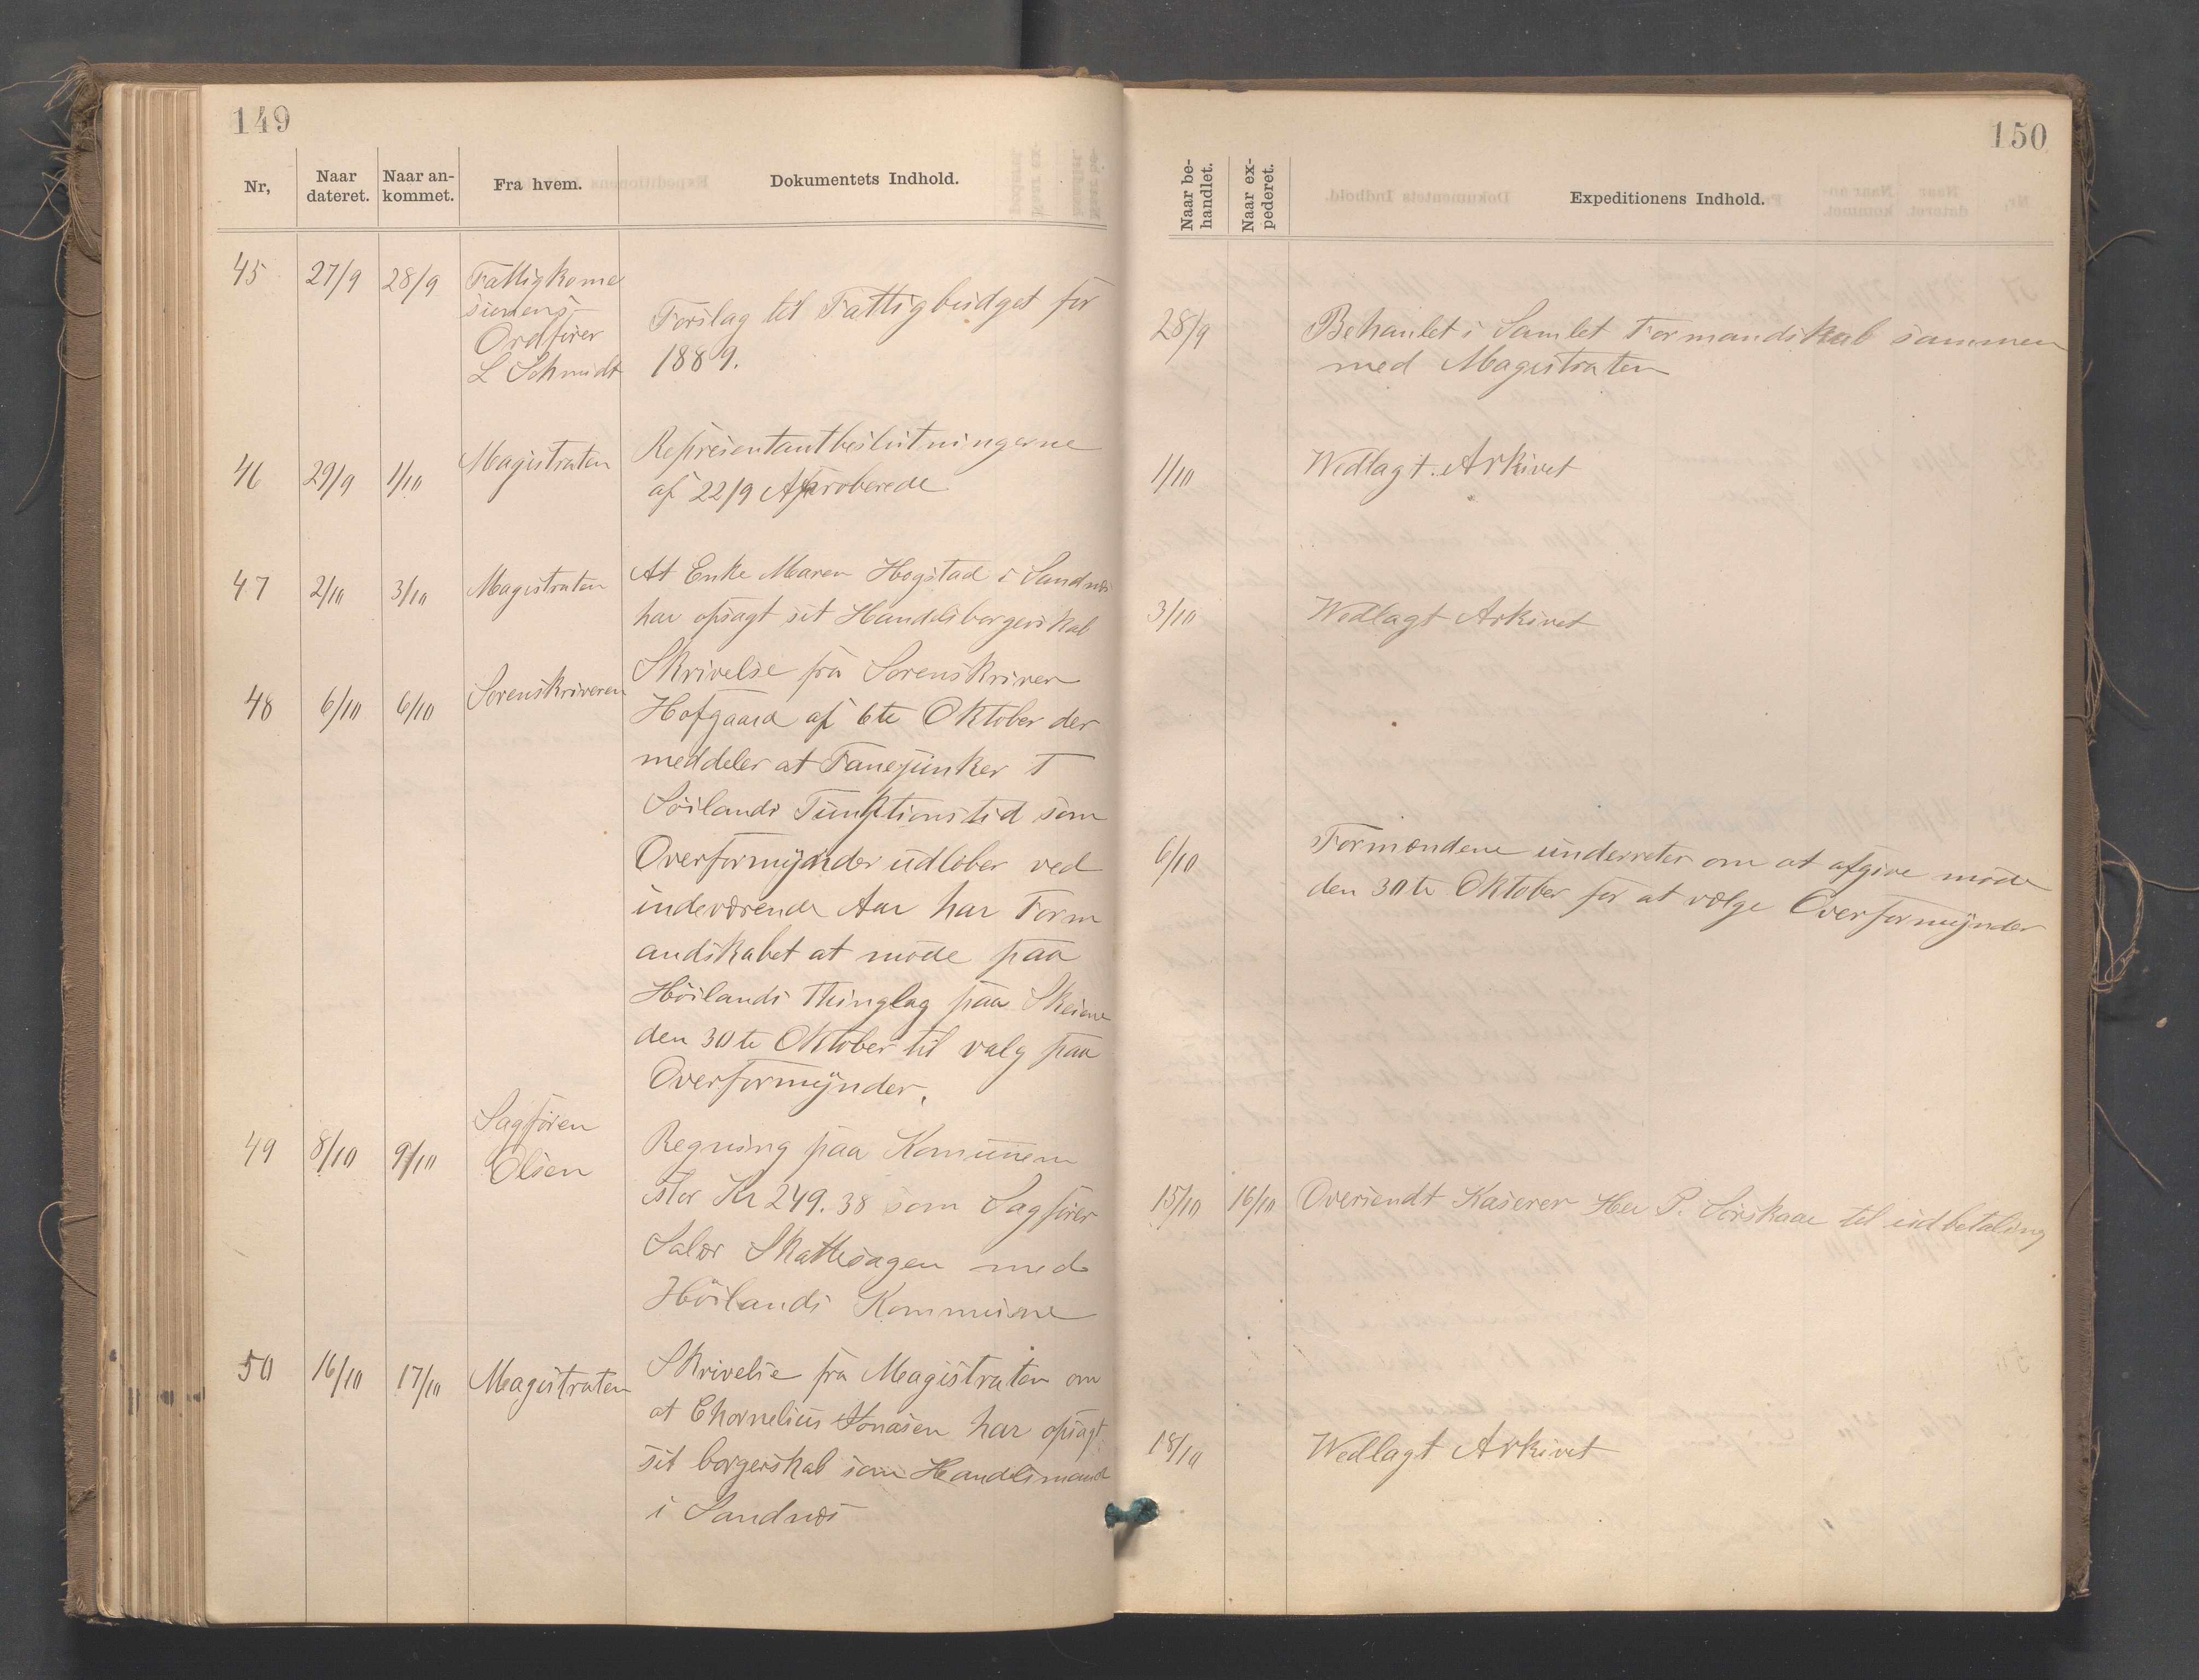 149
Nr,
Naar dateret.
Naar an-
kommet.
Fra hvem.
Dokumentets Indhold.
45
27/9
28/9
Fattigkome
sionens
Ordfører
L Schmidt
Forslag til Fattigbudget for
1889.
46
29/9
1/10
Magistraten
Representantbeslutningerne
af 22/9 Aproberede
47
2/10
3/10
Magistraten
At Enke Maren Hogstad i Sandnæs
har opsagt sit Handelsborgerskab
48
6/10
6/10
Sorenskriveren
Skrivelse fra Sorenskriver
Hofgaard af 6te Oktober der
meddeler at Fanejunker T
Soilands Funktionstid som
Overformynder udløber ved
indeværende Aar har Form
andskabet at møde paa
Höilands Thinglag paa Skeiene
den 30te Oktober til valg paa
Overformynder.
49
8/10
9/10
Sagføren
Olsen
Regning paa Komunen
stor Kr 249.38 som Sagfører
Salær Skattesagen med
Höilands Kommune
50
16/10
17/10
Magistraten
Skrivelse fra Magistraten om
at Chornelius Jonasen har opsagt
sit borgerskab som Handelsmand
i Sandnæs
150
Naar be-
handlet.
Naar ex-
pederet.
Expeditionens Indhold.
28/9
Behanlet i Samlet Formandskab sammen
med Magistraten
1/10
Wedlagt Arkivet
3/10
Wedlagt Arkivet
6/10
Formændene underreter om at afgive møde
den 30te Oktober for at vælge Overformynder
15/10
16/10
Oversendt Kaserer Her P. Sørskaar til indbetaling
18/10
Wedlagt Arkivet